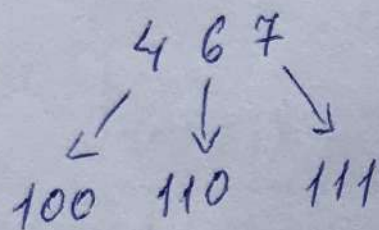 4 6 7
100 110 111